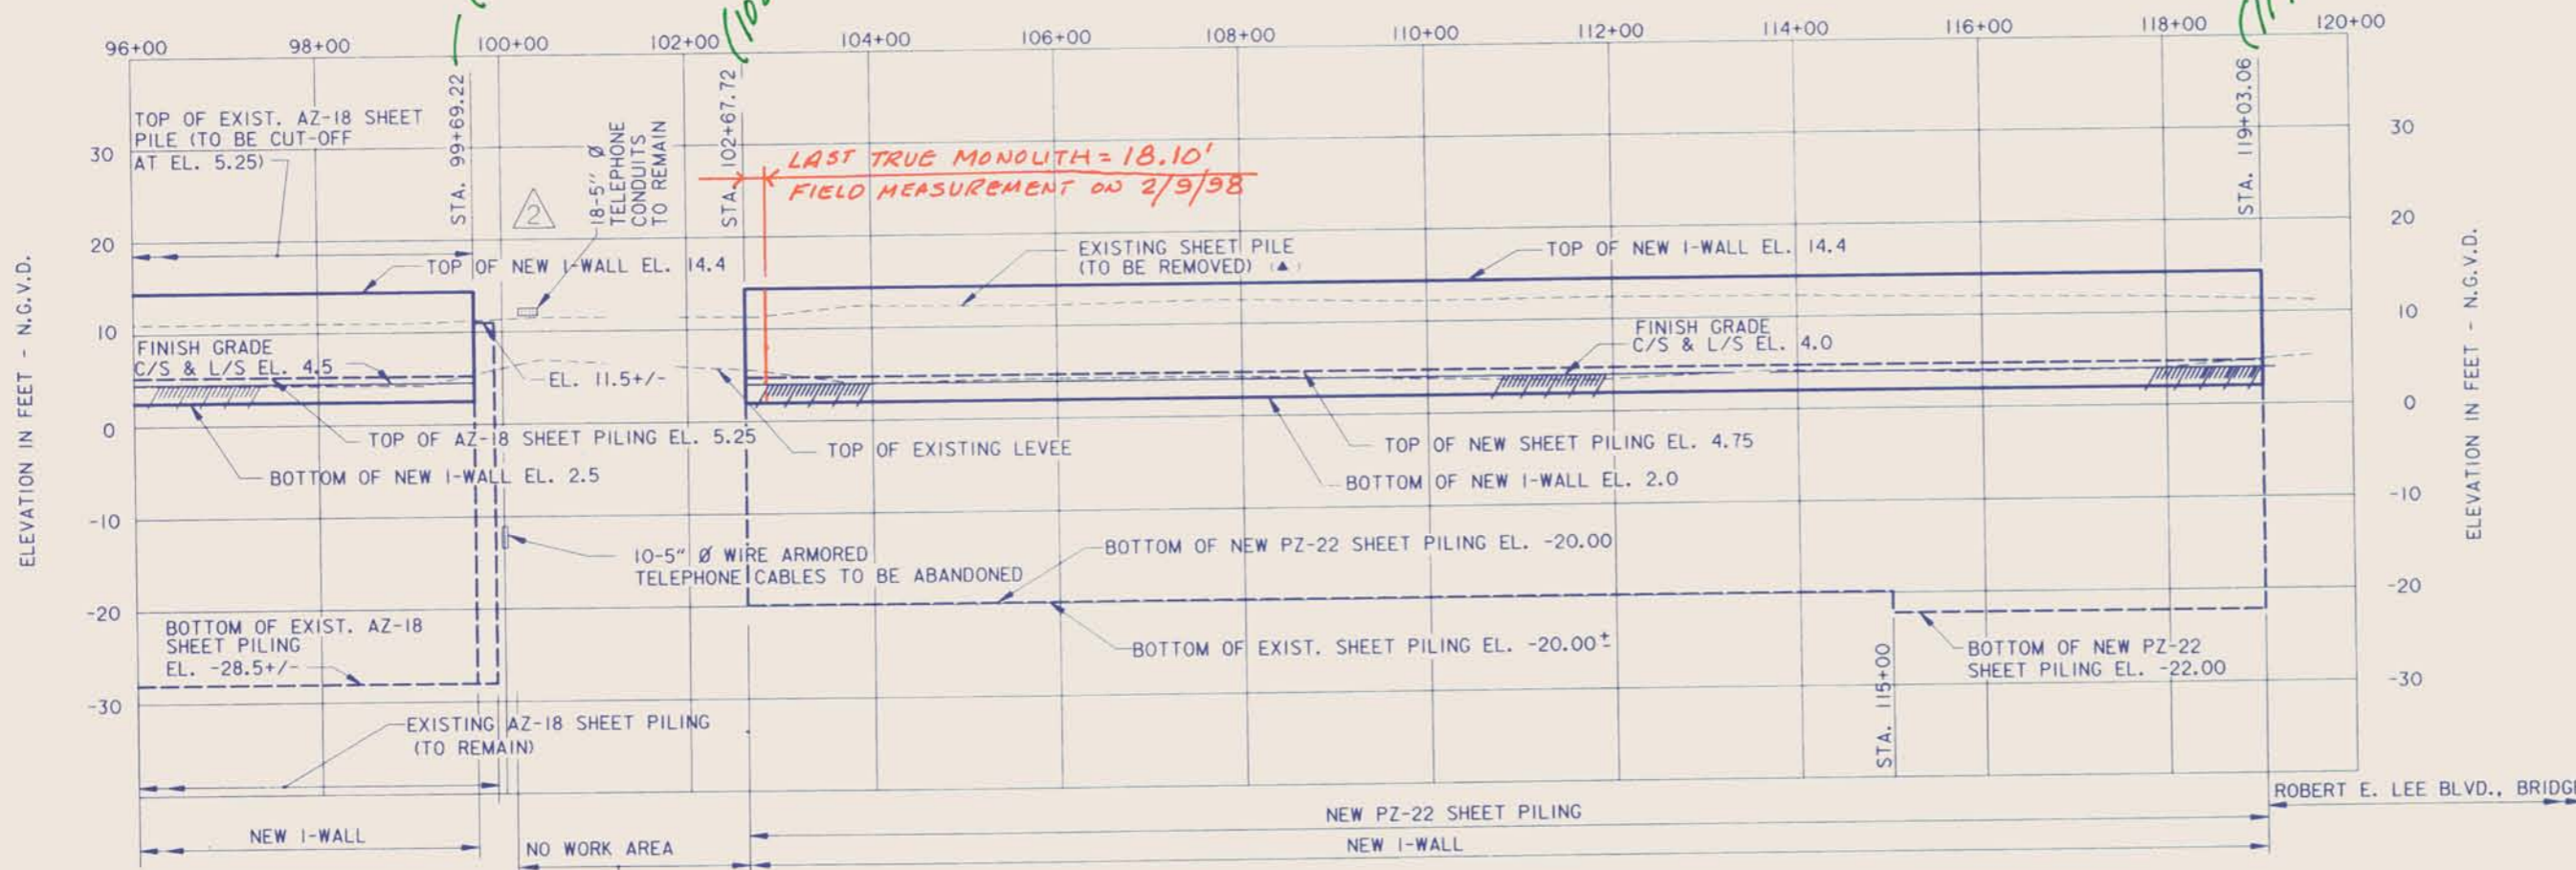 96+00
98+00
100+00
102+00
104+00
106+00
108+00
110+00
112+00
114+00
116+00
118+00
120+00
TOP OF EXIST. AZ-18 SHEET
PILE (TO BE CUT-OFF
AT EL. 5.25)
STA. 99+69.22
18-5" Ø
TELEPHONE
CONDUITS
TO REMAIN
2
STA. 102+67.72
LAST TRUE MONOLITH = 18.10'
FIELD MEASUREMENT ON 2/9/98
STA. 119+03.06
30
20
10
0
-10
-20
-30
ELEVATION IN FEET - N.G.V.D.
30
20
10
0
-10
-20
-30
ELEVATION IN FEET - N.G.V.D.
TOP OF NEW I-WALL EL. 14.4
EXISTING SHEET PILE
(TO BE REMOVED) (▲)
TOP OF NEW I-WALL EL. 14.4
FINISH GRADE
C/S & L/S EL. 4.5
EL. 11.5+/-
FINISH GRADE
C/S & L/S EL. 4.0
TOP OF AZ-18 SHEET PILING EL. 5.25
TOP OF EXISTING LEVEE
TOP OF NEW SHEET PILING EL. 4.75
BOTTOM OF NEW I-WALL EL. 2.5
BOTTOM OF NEW I-WALL EL. 2.0
10-5" Ø WIRE ARMORED
TELEPHONE CABLES TO BE ABANDONED
BOTTOM OF NEW PZ-22 SHEET PILING EL. -20.00
BOTTOM OF EXIST. AZ-18
SHEET PILING
EL. -28.5+/-
BOTTOM OF EXIST. SHEET PILING EL. -20.00±
STA. 115+00
BOTTOM OF NEW PZ-22
SHEET PILING EL. -22.00
EXISTING AZ-18 SHEET PILING
(TO REMAIN)
ROBERT E. LEE BLVD., BRIDGE
NEW PZ-22 SHEET PILING
NEW I-WALL
NO WORK AREA
NEW I-WALL